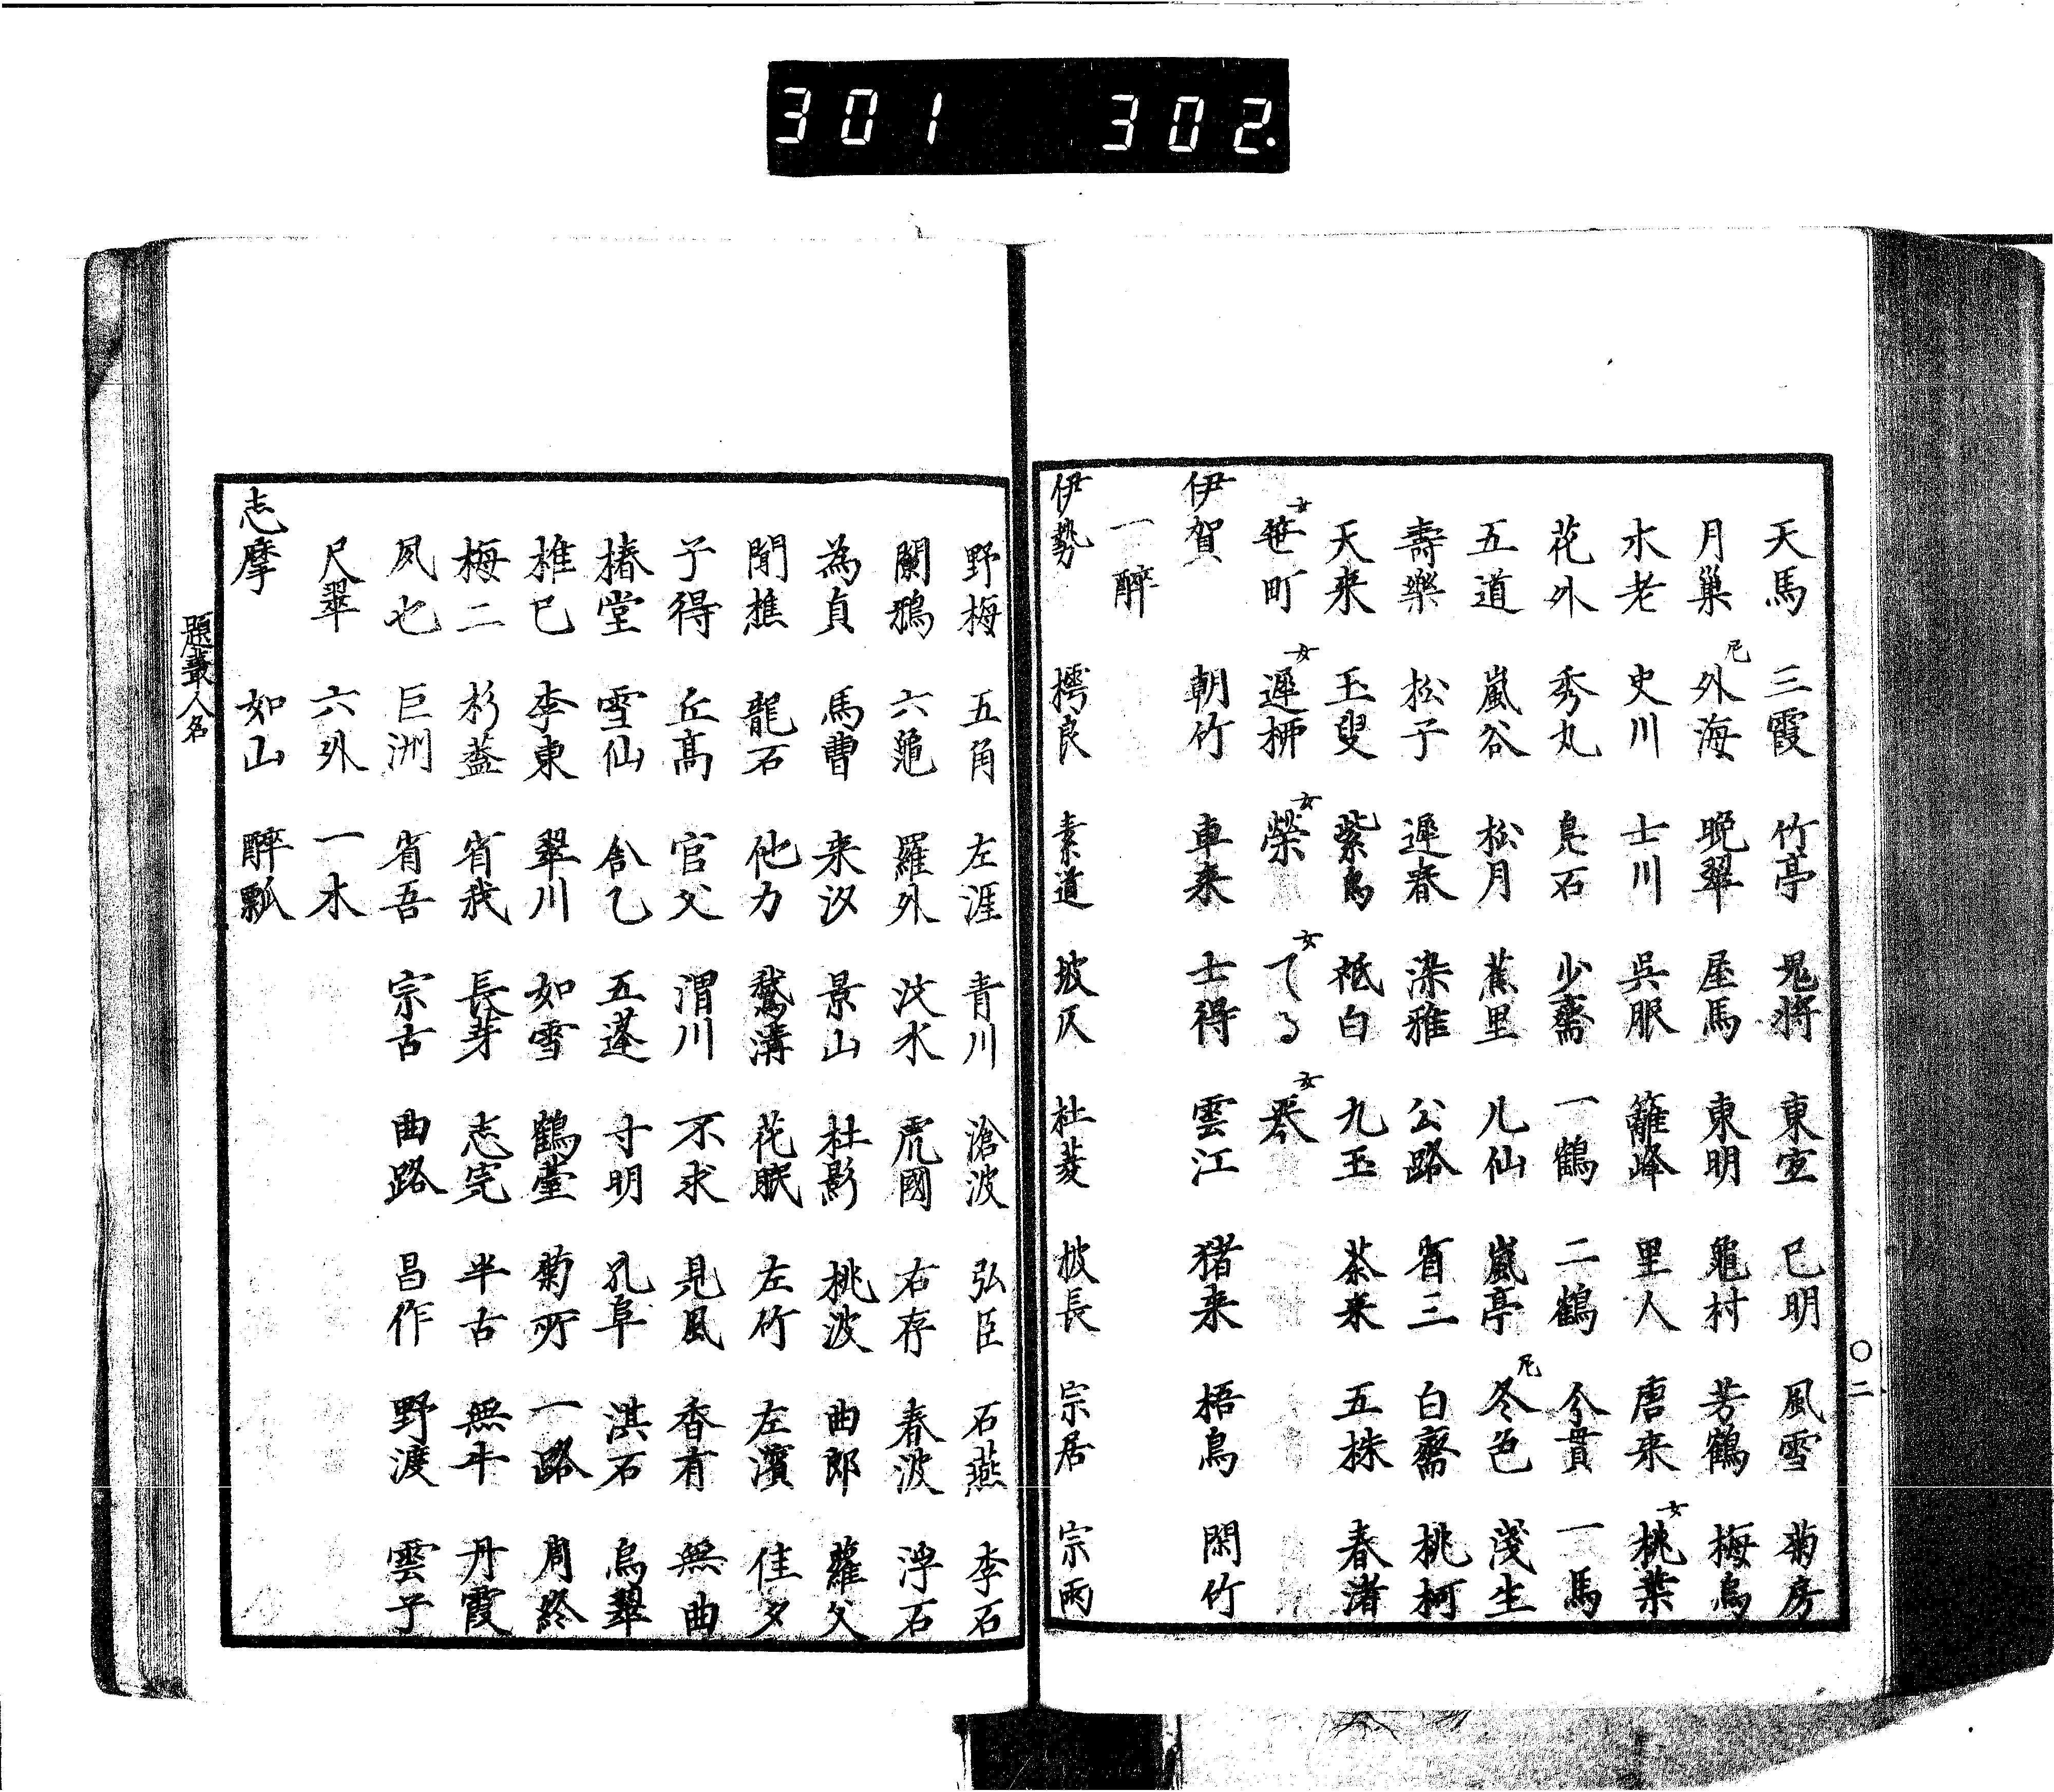 301 302
天馬 三霞 竹亭 鬼將 東宜 巳明 風雪 菊房
月巣 尼外海 晩翠 屋馬 東明 龜村 芳鶴 梅烏
水老 史川 士川 呉服 籬峰 里人 唐来 女桃葉
花外 秀丸 鳧石 少齋 一鶴 二鶴 今貫 一馬
五道 嵐谷 松月 蕉里 几仙 嵐亭 尼冬色 淺生
壽樂 松子 遲春 染雅 公路 省三 白齋 桃柯
天来 玉叟 紫烏 祗白 九玉 茶来 五株 春渚
女笹町 女遲柳 女榮 女てる 女琴
伊賀 朝竹 車来 士得 雲江 猪来 梧鳥 閑竹
一醉
伊勢 樗良 素道 坡仄 杜菱 坡長 宗居 宗雨
〇二
野梅 五角 左涯 青川 滄波 弘臣 石燕 李石
蘭鵶 六龜 羅外 汶水 虎國 右存 春波 浮石
為貞 馬曹 来汐 景山 杜影 桃波 曲郎 蘿父
聞樵 龍石 他力 鶩溝 花眠 左竹 左濱 佳夕
子得 丘高 官父 渭川 不求 見風 香有 無曲
椿堂 雪仙 舎乙 五蓬 寸明 孔阜 淇石 烏翠
椎巳 李東 翠川 如雪 鶴臺 菊所 一路 周終
梅二 杉蓋 省我 長芽 志完 半古 無牛 丹霞
夙也 巨洲 省吾 宗古 曲路 昌作 野渡 雲子
尺翠 六外 一木
志摩 如山 醉瓢
題叢人名